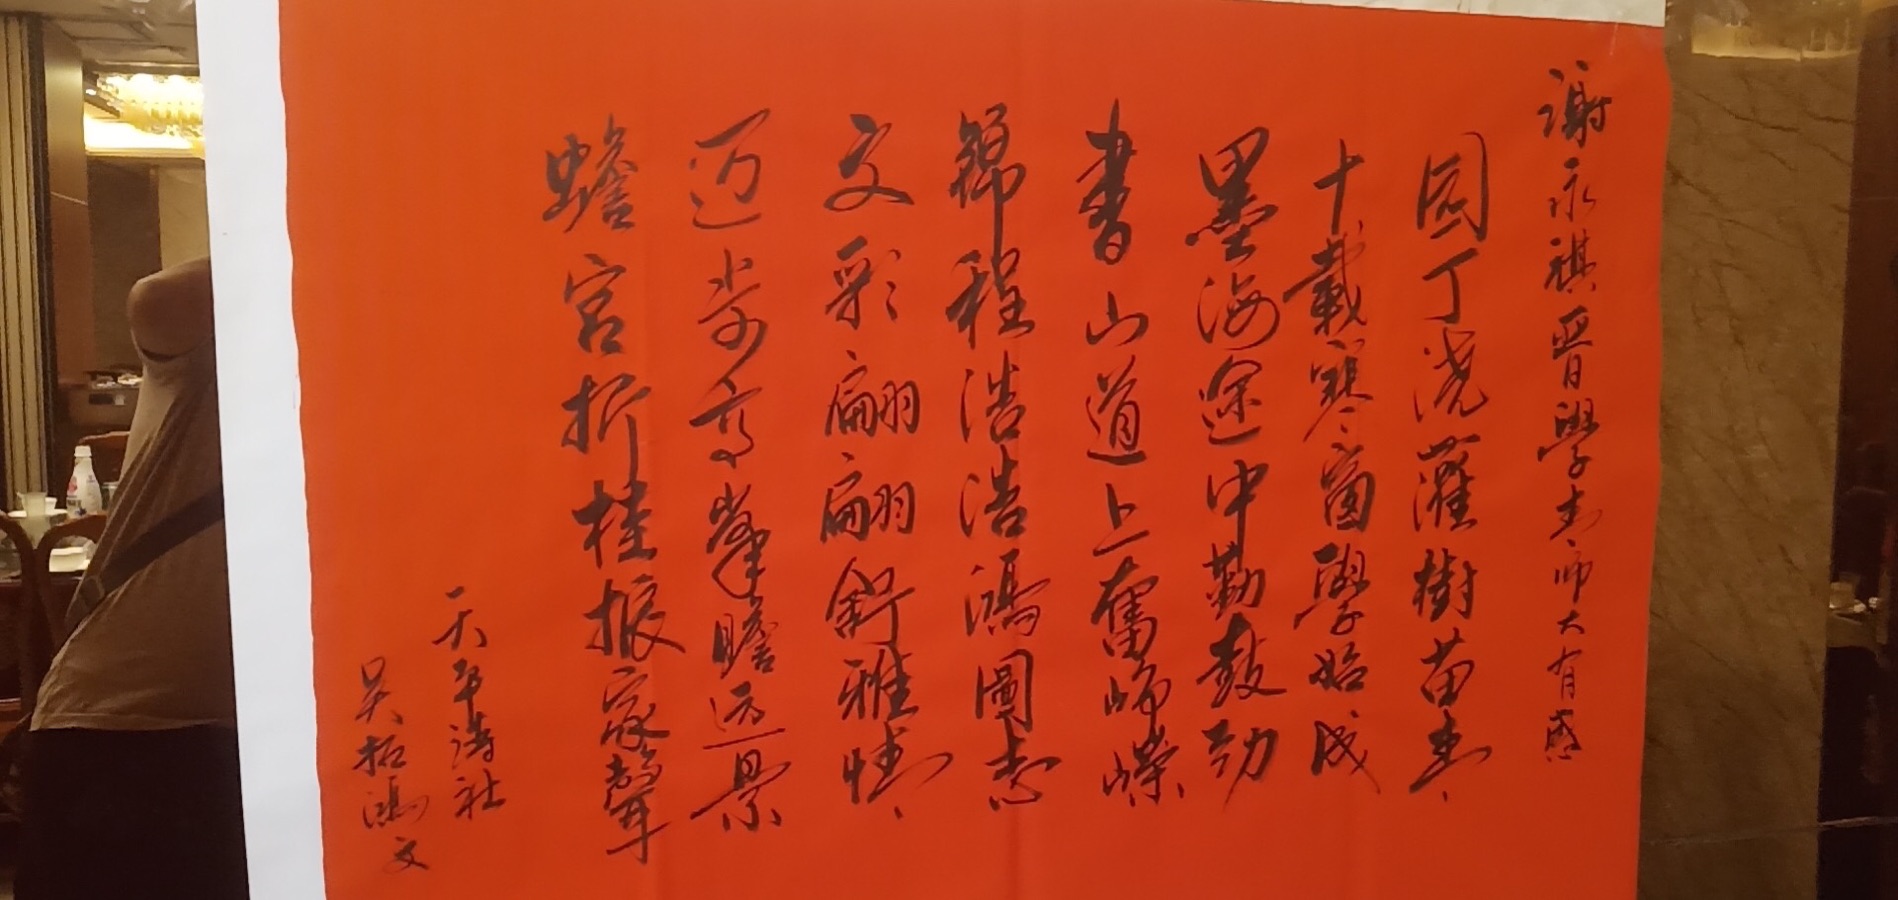 謝永祺晋學师大有感
园丁浇灌樹苗青
十載寒窗學始成
墨海途中勤鼓劲
書山道上奮峥嵘
錦程浩浩鴻圖志
文彩翩翩舒雅情
迈步高峯瞻远景
蟾宫折桂振家聲
天平诗社
吴拓鴻文